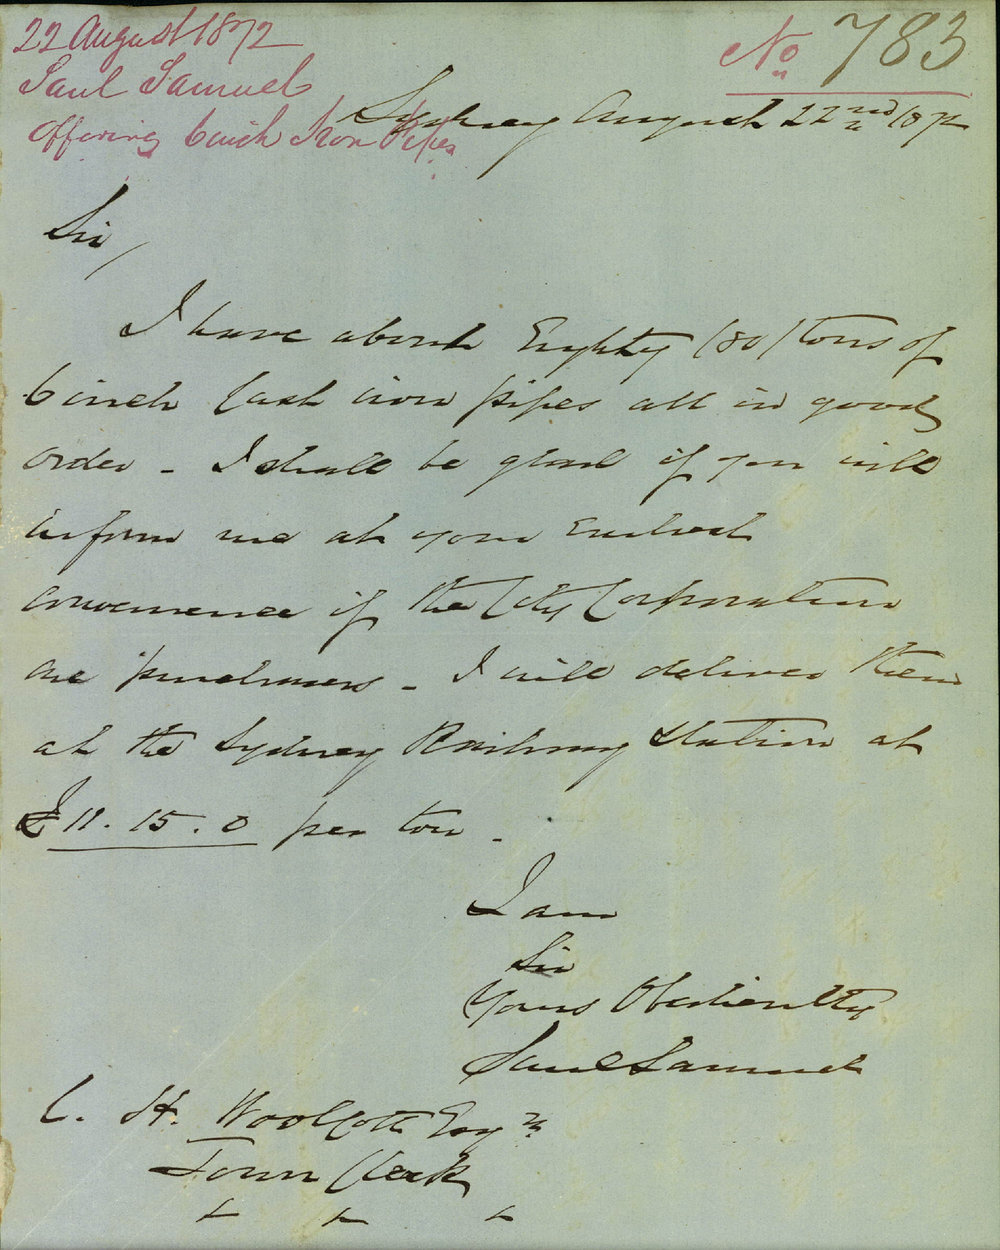 22 August 1872
Saul Samuel
Offering 6 inch Iron Pipes
No 783
Sydney August 22nd 1872
Sir,
I have about Eighty (80) tons of
6 inch Cast iron pipes all in good
order - I shall be glad if you will
inform me at your Earliest
convenience if the City Corporation
are purchasers - I will deliver them
at the Sydney Railway Station at
£11.15.0 per ton -
I am
Sir
Yours Obediently
Saul Samuel
C. H. Woolcott Esqre
Town Clerk